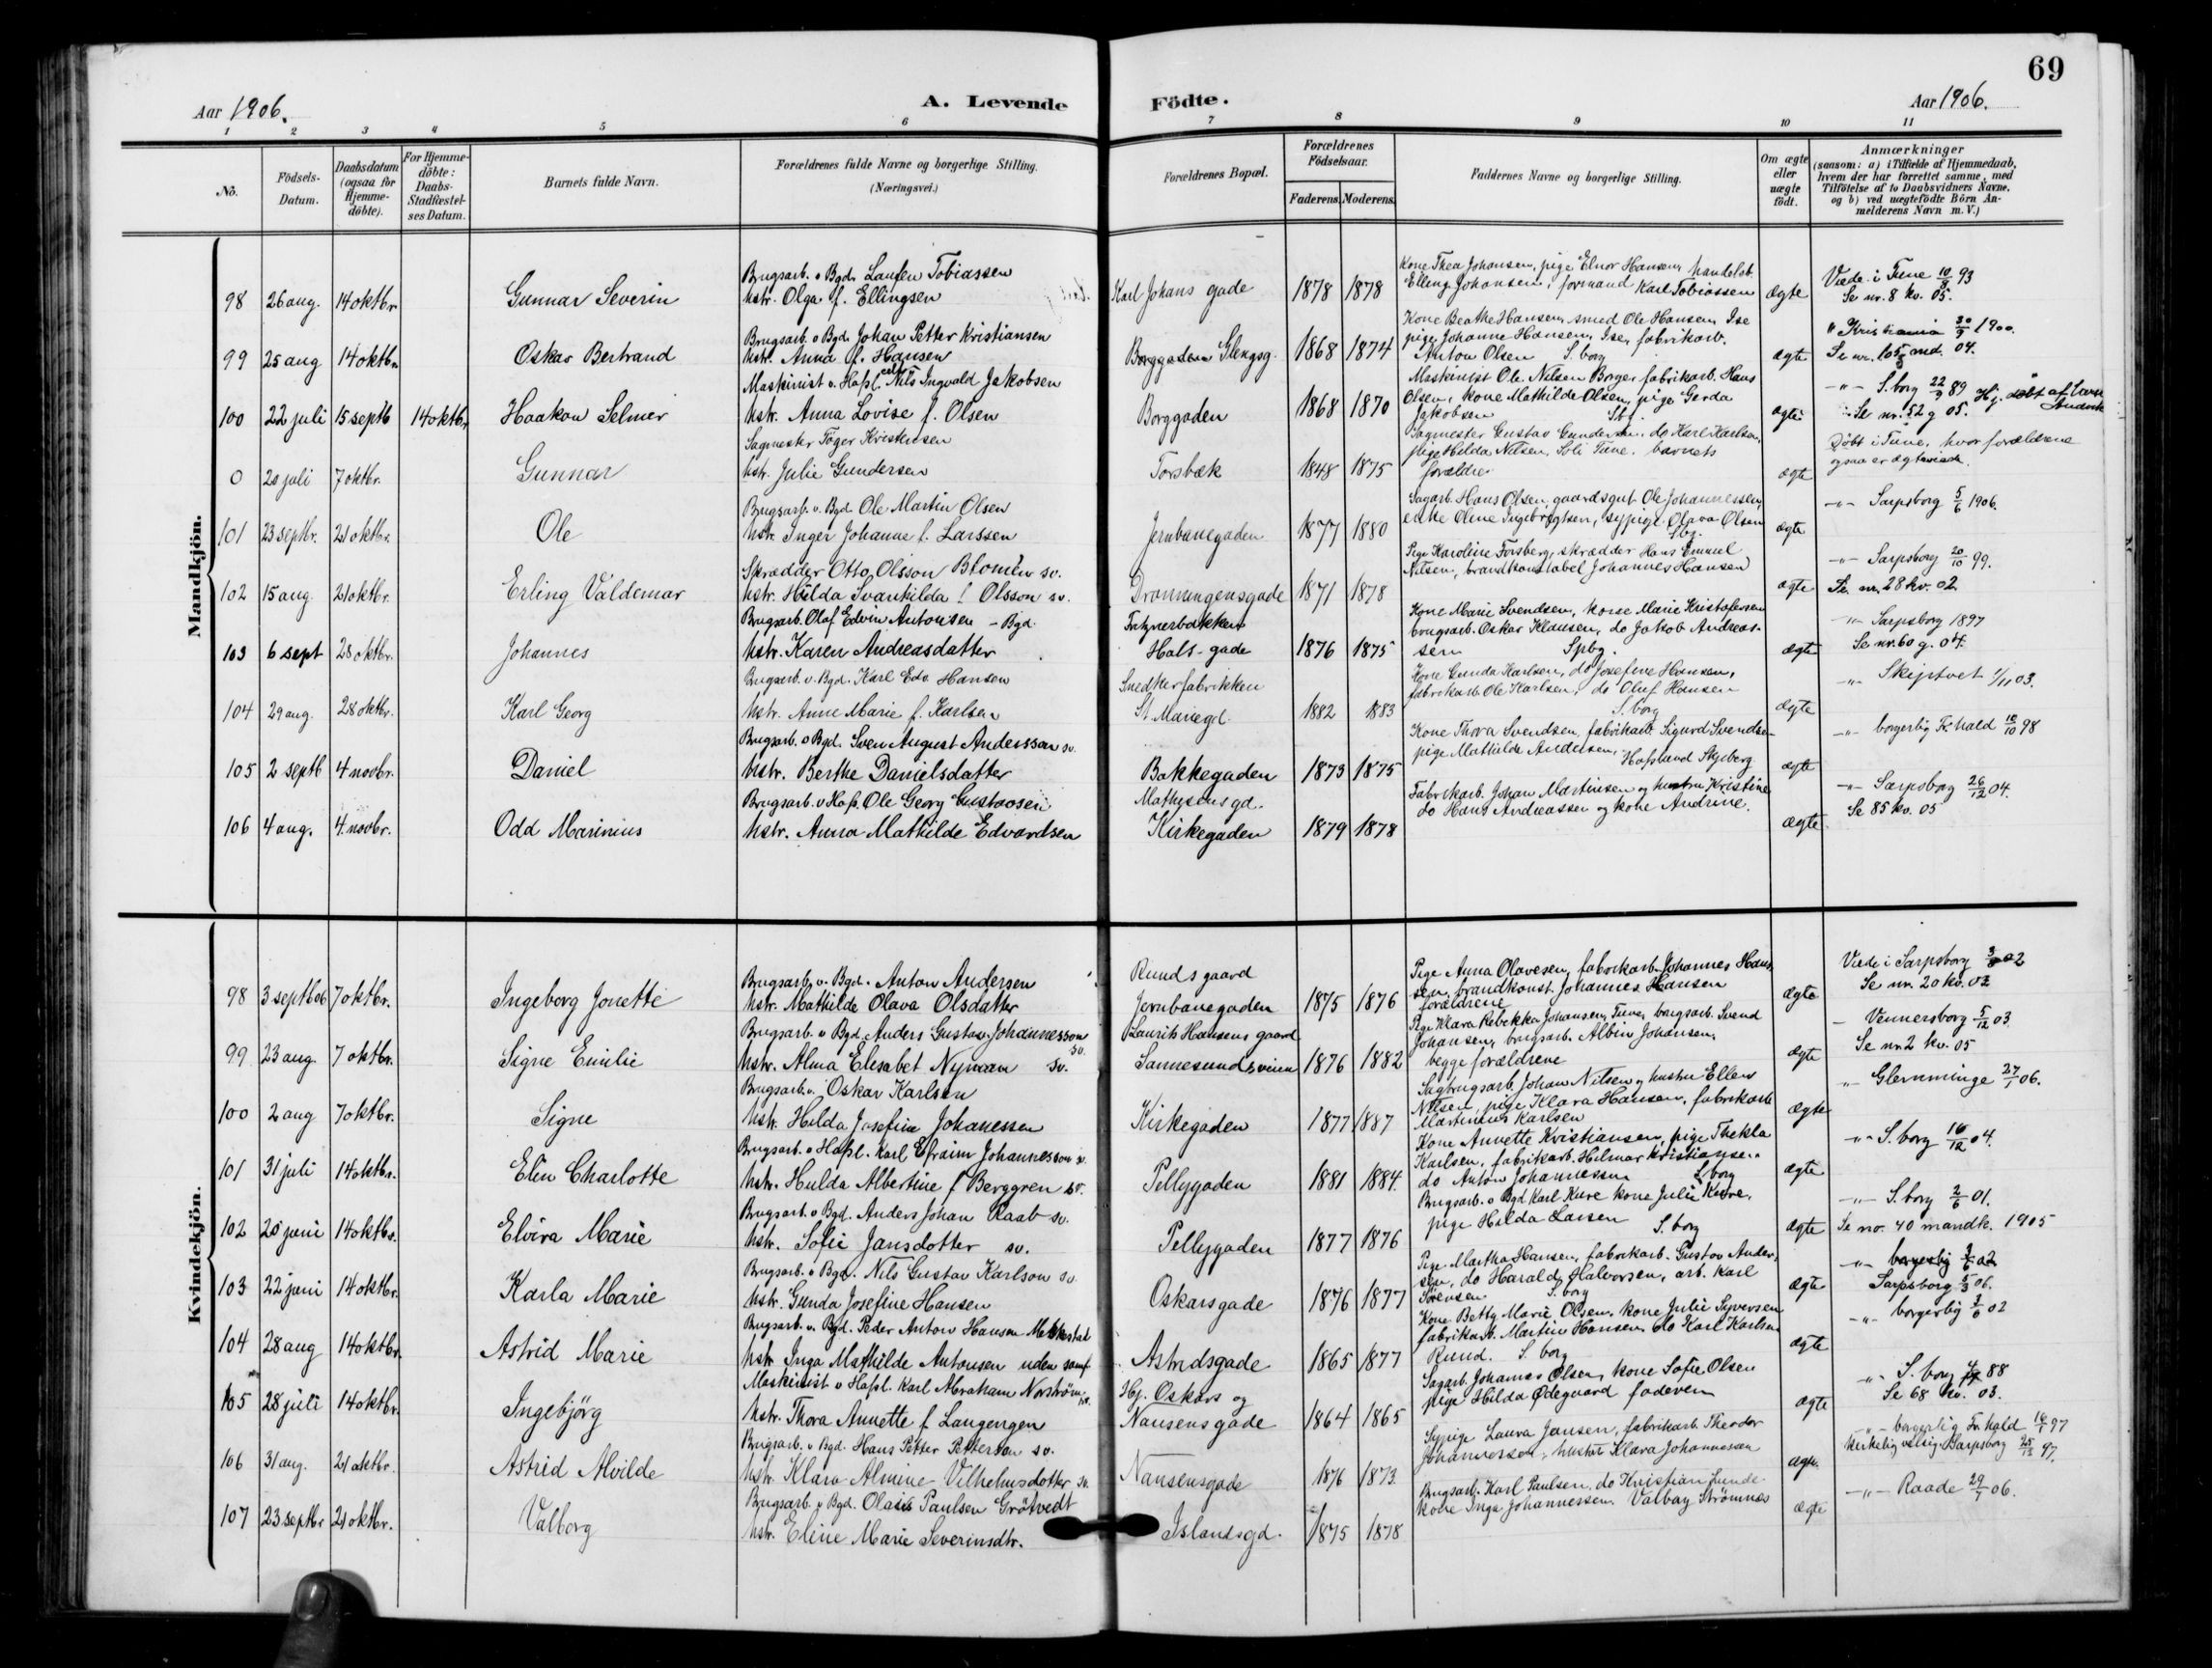 69
Aar 1906.
A. Levende Födte.
Aar 1906.
1 2 3 4 5 6 7 8 9 10 11
No.
Födsels-Datum.
Daabsdatum (ogsaa for Hjemme-döbte).
For Hjemme-döbte: Daabs-Stadfæstel-ses Datum.
Barnets fulde Navn.
Forældrenes fulde Navne og borgerlige Stilling.
(Næringsvei.)
Forældrenes Bopæl.
Forældrenes Födselsaar.
Faderens. Moderens.
Faddernes Navne og borgerlige Stilling.
Om ægte eller uægte födt.
Anmærkninger
(saasom: a) i Tilfælde af Hjemmedaab,
hvem der har forrettet samme, med
Tilföielse af to Daabsvidners Navne,
og b) ved uægtefödte Börn An-
melderens Navn m. V.)
Mandkjön.
Brugsarb. v Bgd. Laufen Tobiassen
Kone Thea Johansen, pige Elnor Hansen, handelsb.
98 26 aug. 14 oktbr. Gunnar Severin hstr. Olga f. Ellingsen Karl Johans gade 1878 1878 Elling Johansen, formand Karl Tobiassen ægte Viede i Tune 10/9 93
Se nr. 8 kv. 05.
Brugsarb. v Bgd. Johan Petter Kristiansen
Kone Beathe Hansen, smed Ole Hansen, Ise
pige Johanne Hansen, Ise, fabrikarb.
99 25 aug 14 oktbr. Oskar Bertrand hstr. Anna f. Hansen Borggaden Glengsg. 1868 1874 Anton Olsen S. borg ægte " Kristiania 30/9 1900.
Se nr. 105 md. 04.
Maskinist v. Hafsl. Nils Ingvald Jakobsen
Maskinist Ole Nilsen Borge, fabrikarb. Hans
100 22 juli 15 septb 14 oktbr. Haakon Selmer hstr. Anna Lovise f. Olsen Borggaden 1868 1870 Olsen, kone Mathilde Olsen, pige Gerda
Jakobsen Sbg. ægte -"- S. borg 22/9 89 Hj. döbt af
Se nr. 52 g 05.
Sagmester Töger Kristensen
Sagmester Gustav Gundersen, do Karl Karlsen,
0 20 juli 7 oktbr. Gunnar hstr. Julie Gundersen Torsbæk 1848 1875 pige Hilda Nilsen, Soli Tune. barnets
forældre ægte Döbt i Tune, hvor forældrene
ogsaa er ægteviede.
Brugsarb. v. Bgd. Ole Martin Olsen
Sagarb. Hans Olsen, gaardsgut Ole Johannessen,
101 23 septbr. 21 oktbr. Ole hstr. Inger Johanne f. Larssen Jernbanegaden 1877 1880 enke Oline Ingebrigtsen, sypige Olava Olsen
Sbg. ægte -"- Sarpsborg 5/6 1906.
Skrædder Otto Olsson Blomén sv.
Pige Karoline Forsberg, skrædder Hans Emuel
102 15 aug. 21 oktbr. Erling Valdemar hstr. Hilda Svanhilda f. Olsson sv. Dronningensgade 1871 1878 Nilsen, brandkonstabel Johannes Hansen ægte -"- Sarpsborg 20/10 99.
Se nr. 28 kv. 02.
Brugsarb. Olaf Edvin Antonsen - Bgd.
Kone Marie Svendsen, kone Marie Kristofersen
brugsarb. Oskar Klausen, do Jakob Andreas-
103 6 sept 28 oktbr. Johannes hstr. Karen Andreasdatter Hals-gade 1876 1875 sen Spbg. ægte -"- Sarpsborg 1897
Se nr. 60 g. 04.
Brugsarb. v. Bgd. Karl Edv. Hansen
Snedkerfabrikken
Kone Gunda Karlsen, do Josefine Hansen,
fabrikarb. Ole Karlsen, do Oluf Hansen
104 29 aug. 28 oktbr. Karl Georg hstr. Anne Marie f. Karlsen St. Mariegd. 1882 1883 S. borg ægte -"- Skiptvet 1/11 03.
Brugsarb. v Bgd. Sven August Andersson sv.
Kone Thora Svendsen, fabrikarb. Sigurd Svendsen
105 2 septb 4 novbr. Daniel hstr. Berthe Danielsdatter Bakkegaden 1873 1875 pige Mathilde Andersen, Hafslund Skjeberg ægte -"- borgerlig Fr.hald 10/10 98
Brugsarb. v Hafsl. Ole Georg Gustavsen
Mathesens gd.
Fabrikarb. Johan Martinsen og hustru Kristine
106 4 aug. 4 novbr. Odd Marinius hstr. Anna Mathilde Edvardsen Kirkegaden 1879 1878 do Hans Andreassen og kone Andrine. ægte -"- Sarpsborg 26/12 04.
Se 85 kv. 05
Kvindekjön.
Brugsarb. v. Bgd. Anton Andersen
Runds gaard
Pige Anna Olavesen, fabrikarb. Johannes Han-
98 3 septb 06 7 oktbr. Ingeborg Jonette hstr. Mathilde Olava Olsdatter Jernbanegaden 1875 1876 sen, brandkonst. Johannes Hansen
forældrene ægte Viede i Sarpsborg 02
Se nr. 20 kv. 03
Brugsarb. v Bgd. Anders Gustav Johannesson sv.
Laurits Hansens gaard
Pige Klara Rebekka Johansen, Tune, brugsarb. Svend
99 23 aug. 7 oktbr. Signe Emilie hstr. Alma Elisabet Nyman sv. Sannesundsveien 1876 1882 Johansen, brugsarb. Albin Johansen,
begge forældrene ægte - Vennersborg 5/12 03.
Se nr. 2 kv. 05
Brugsarb. v. Oskar Karlsen
Sagbrugsarb. Johan Nilsen og hustru Ellen
100 2 aug 7 oktbr. Signe hstr. Hilda Josefine Johanessen Kirkegaden 1877 1887 Nilsen, pige Klara Hansen, fabrikarb
Martinius Karlsen ægte -"- Glemminge 27/1 06.
Brugsarb. v Hafsl. Karl Efraim Johannesson sv.
Kone Annette Kristiansen, pige Thekla
101 31 juli 14 oktbr. Elin Charlotte hstr. Hulda Albertine f Berggren sv. Pellygaden 1881 1884. Karlsen, fabrikarb. Hilmar Kristiansen
do Anton Johannessen S. borg ægte -"- S. borg 16/12 04.
Brugsarb. v Bgd. Anders Johan Raab sv.
Brugsarb. v Bgd Karl Kure kone Julie Kure,
102 20 juni 14 oktbr. Elvira Marie hstr. Sofie Jansdotter sv. Pellygaden 1877 1876 pige Hilda Larsen S. borg ægte -"- S. borg 2/6 01.
Se nr. 40 mandk. 1905
Brugsarb. v Bgd. Nils Gustav Karlson sv.
Pige Martha Hansen, fabrikarb. Gustav Ander-
103 22 juni 14 oktbr. Karla Marie hstr. Gunda Josefine Hansen Oskarsgade 1876 1877 sen, do Harald Halvorsen, arb. Karl
Sörensen S. borg ægte -"- borgerlig 02
Sarpsborg 5/3 06.
Brugsarb. v. Bgd. Peder Anton Hansen
Kone Betty Marie Olsen, kone Julie Syversen
104 28 aug 14 oktbr. Astrid Marie hstr Inga Mathilde Antonsen uden samf Astridsgade 1865 1877 fabrikarb. Martin Hansen, do Karl Karlsen
Rund. S. borg ægte -"- borgerlig 02
Maskinist v Hafsl. Karl Abraham Norström sv.
Hj. Oskars og
Sagarb. Johannes Olsen, kone Sofie Olsen
105 28 juli 14 oktbr. Ingebjörg hstr. Thora Annette f Langengen Nansensgade 1864 1865 pige Hilda Ødegaard faderen ægte -"- S. borg 88
Se 68 kv. 03.
Brugsarb. v Bgd. Hans Petter Petterson sv.
Sypige Laura Jansen, fabrikarb. Theodor
106 31 aug. 21 oktbr. Astrid Alvilde hstr. Klara Almine Vilhelmsdotter sv. Nansensgade 1876 1873. Johannessen, hustru Klara Johannessen ægte -"- borgerlig Fr.hald 97
kirkelig Sarpsborg 25/12 97.
Brugsarb. v Bgd. Olaus Paulsen Grötvedt
Brugsarb. Karl Paulsen, do Kristian Lunde
107 23 septbr 21 oktbr. Valborg hstr. Eline Marie Severinsdtr. Islandsgd. 1875 1878 kone Inga Johannessen. Valbay Strömnæs ægte -"- Raade 29/7 06.